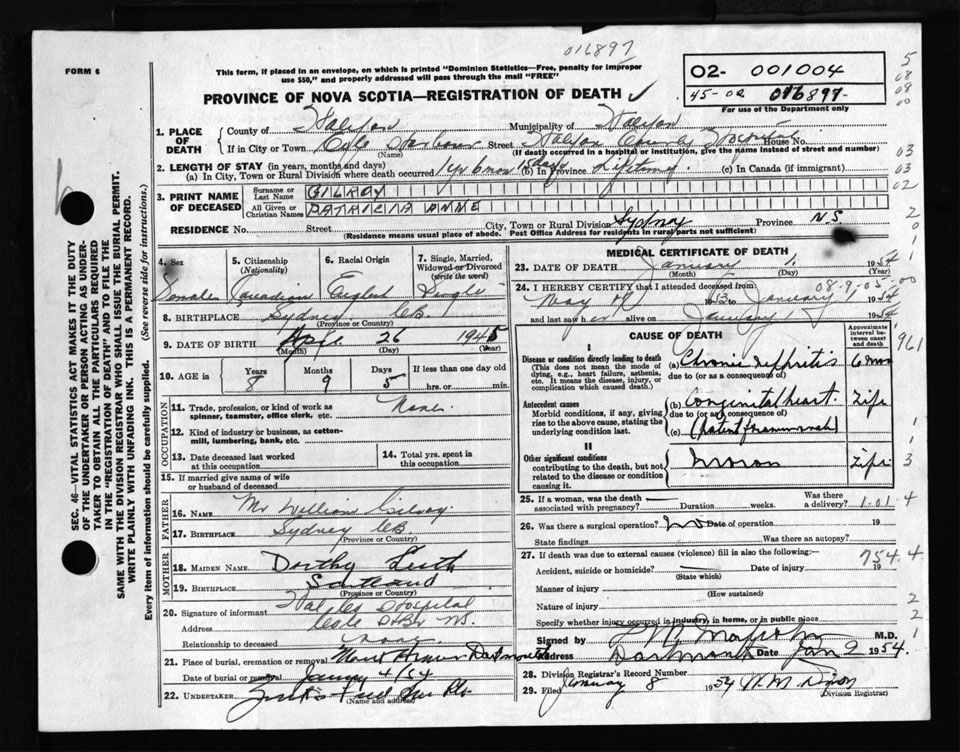 016897
FORM 6
This form, if placed in an envelope, on which is printed "Dominion Statistics—Free, penalty for improper
use $50," and properly addressed will pass through the mail "FREE"
O2- 001004
45-02 016897-
For use of the Department only
PROVINCE OF NOVA SCOTIA—REGISTRATION OF DEATH
1. PLACE OF DEATH
County of Halifax Municipality of Halifax
If in City or Town Cole Harbour Street Halifax County Hospital House No.
(Name) (If death occurred in a hospital or institution, give the name instead of street and number)
2. LENGTH OF STAY (in years, months and days)
(a) In City, Town or Rural Division where death occurred 1 yr 6 mos 15 days (b) In Province Lifetime (c) In Canada (if immigrant)
3. PRINT NAME OF DECEASED
Surname or Last Name GILROY
All Given or Christian Names PATRICIA ANNE
RESIDENCE No. Street City, Town or Rural Division Sydney Province N.S.
(Residence means usual place of abode. Post Office Address for residents in rural parts not sufficient)
4. Sex 5. Citizenship (Nationality) 6. Racial Origin 7. Single, Married, Widowed or Divorced (write the word)
Female Canadian English Single
8. BIRTHPLACE Sydney C.B.
(Province or Country)
9. DATE OF BIRTH April 26 1945
(Month) (Day) (Year)
10. AGE in Years Months Days If less than one day old
8 9 5 hrs. or min.
OCCUPATION
11. Trade, profession, or kind of work as
spinner, teamster, office clerk, etc. None
12. Kind of industry or business, as cotton-
mill, lumbering, bank, etc.
13. Date deceased last worked
at this occupation
14. Total yrs. spent in
this occupation
15. If married give name of wife
or husband of deceased
FATHER
16. NAME Mr William Gilroy
17. BIRTHPLACE Sydney C.B.
(Province or Country)
MOTHER
18. MAIDEN NAME Dorthy Leith
19. BIRTHPLACE Scotland
(Province or Country)
20. Signature of informant Halifax Hospital
Address
Relationship to deceased
21. Place of burial, cremation or removal Mount Hermon Dartmouth
Date of burial or removal January 4/54
22. UNDERTAKER
(Name and address)
MEDICAL CERTIFICATE OF DEATH
23. DATE OF DEATH January 1, 1954
(Month) (Day) (Year)
24. I HEREBY CERTIFY that I attended deceased from: 08-9-05-00
May 1953 January 1954
and last saw her alive on January 1 1954
CAUSE OF DEATH
Approximate interval between onset and death
961
I
Disease or condition directly leading to death
(This does not mean the mode of dying, e.g., heart failure, asthenia, etc. It means the disease, injury, or complication which caused death.)
(a) Chronic nephritis 6 mos
due to (or as a consequence of)
Antecedent causes
Morbid conditions, if any, giving rise to the above cause, stating the underlying condition last.
(b) Congenital heart. Life
due to (or as a consequence of)
(c) (patent foramen ovale)
II
Other significant conditions
contributing to the death, but not related to the disease or condition causing it.
Moron Life
25. If a woman, was the death associated with pregnancy? Duration weeks. Was there a delivery? 1-01-4
26. Was there a surgical operation? No Date of operation 19
State findings Was there an autopsy?
27. If death was due to external causes (violence) fill in also the following:— 754.4
Accident, suicide or homicide? Date of injury 19
(State which)
Manner of injury
(How sustained)
Nature of injury
Specify whether injury occurred in industry, in home, or in public place
Signed by M.D.
Address Dartmouth Date Jan 2 1954.
28. Division Registrar's Record Number
29. Filed January 8 1954
(Division Registrar)
SEC. 46—VITAL STATISTICS ACT MAKES IT THE DUTY
OF THE UNDERTAKER OR PERSON ACTING AS UNDER-
TAKER TO OBTAIN ALL THE PARTICULARS REQUIRED
IN THE "REGISTRATION OF DEATH" AND TO FILE THE
SAME WITH THE DIVISION REGISTRAR WHO SHALL ISSUE THE BURIAL PERMIT.
WRITE PLAINLY WITH UNFADING INK. THIS IS A PERMANENT RECORD.
Every item of information should be carefully supplied. (See reverse side for instructions.)